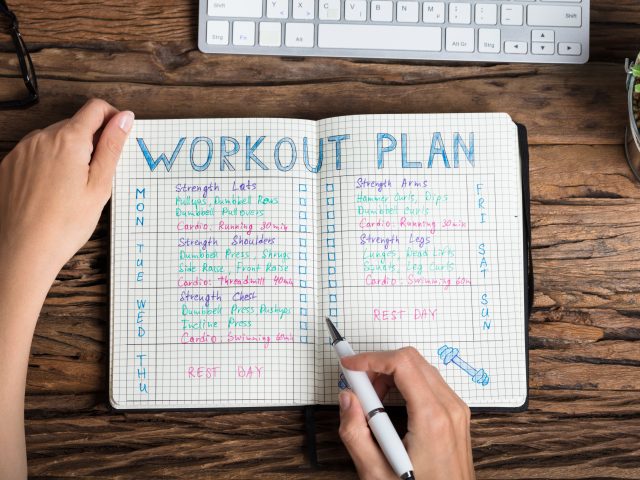 WORKOUT PLAN
MON
Strength Lats
Pullups, Dumbbell Rows
Dumbbell Pullovers
Cardio: Running 30min
TUE
Strength Shoulders
Dumbbell Press, Shrugs
Side Raise, Front Raise
Cardio: Threadmill 40min
WED
Strength Chest
Dumbbell Press Pushups
Incline Press
Cardio: Swimming 60min
THU
REST DAY
FRI
Strength Arms
Hammer Curls, Dips
Dumbbell Curls
Cardio: Running 30min
SAT
Strength Legs
Lunges, Dead Lifts
Squats, Leg Curls
Cardio: Swimming 60m
SUN
REST DAY
Shift
Y X C V B N M ; : _ Shift
Strg Fn Alt Alt Gr Strg